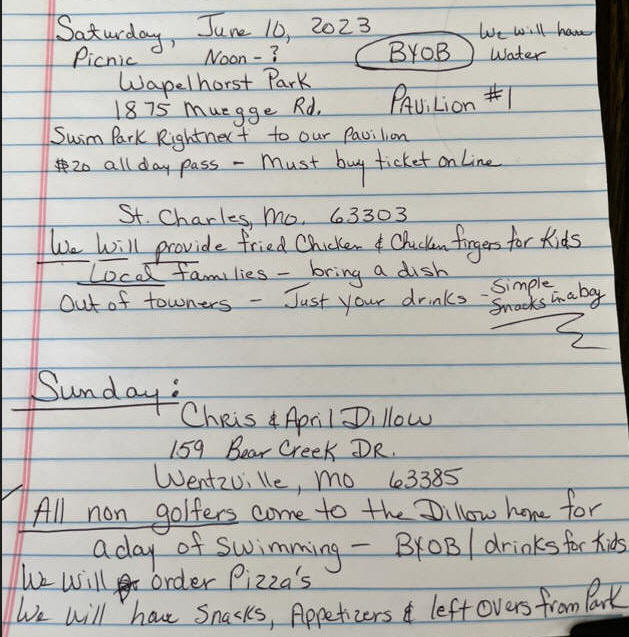 Saturday, June 10, 2023
Picnic Noon - ? BYOB We will have Water
Wapelhorst Park
1875 Muegge Rd. Pavilion #1
Swim Park Right next to our Pavilion
$20 all day pass - Must buy ticket online
St. Charles, Mo. 63303
We will provide fried Chicken & Chicken fingers for Kids
Local families - bring a dish
Out of towners - Just your drinks - Simple Snacks in a bag
Sunday:
Chris & April Dillow
159 Bear Creek DR.
Wentzville, Mo 63385
All non golfers come to the Dillow home for
a day of swimming - BYOB / drinks for Kids
We will order Pizza's
We will have Snasks, Appetizers & left overs from Park